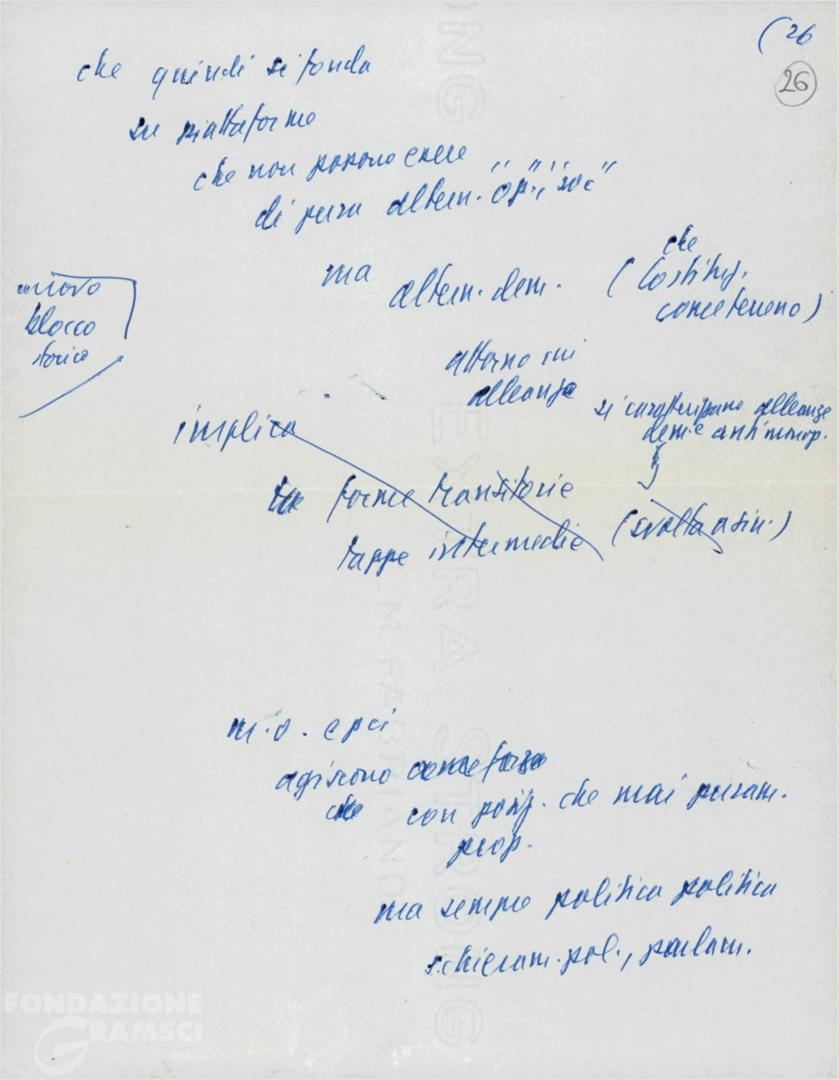 (26
26
che quindi si fonda
su piattaforme
che non possono essere
di pura altern. "op", "soc"
ma altern. dem. (che
costituz.
concretereno)
nuovo
blocco
storico
attorno cui
alleanze
si caratterizzano alleanze
dem. e antimonop.
implica
forme transitorie
tappe intermedie (svolta a sin.)
m.o. e pci
agiscono come forze
che con poliz. che mai puram.
prop.
ma sempre politica politica
schieram. pol., parlam.
FONDAZIONE
GRAMSCI
EXTRA STRONG
FABRIANO